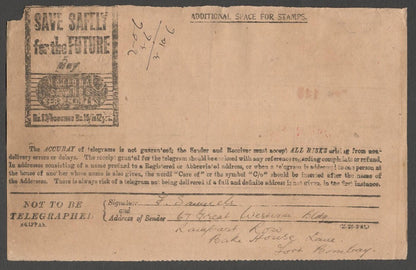 ADDITIONAL SPACE FOR STAMPS.
SAVE SAFELY
for the FUTURE
Buy
206
46
The ACCURAY of telegrams is not guaranteed; the Sender and Receiver must accept ALL RISKS arising from non-
delivery errors or delays. The receipt granted for the telegram should be enclosed with any references, acting complaints or refund.
In addresses consisting of a name pretend to a Registered or Abbreviated address, or when a telegram is addressed to one person at
the house of another whose name is also given, the words "Care of" or the symbol "C/o" should be inserted after the name of
the Addressee. There is always risk of a telegram not being delivered if a full and definite address is not given, in the first instance.
NOT TO BE
TELEGRAPHED
Signature
and
Address of Sender
67 Great Western Bldg.
Rampart Row
Bake House Lane
Fort Bombay.